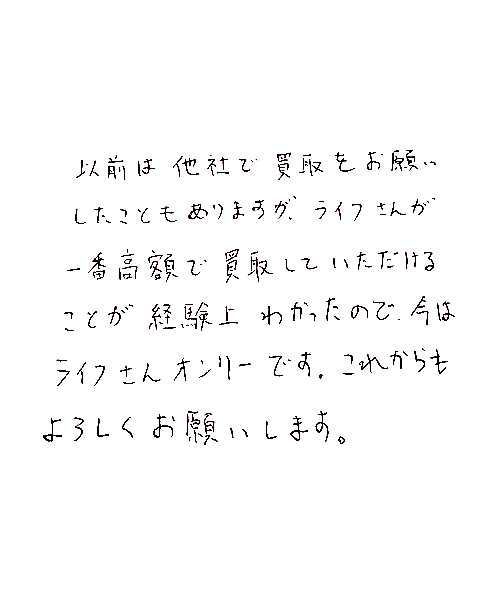 以前は他社で買取をお願い
したこともありますが、ライフさんが
一番高額で買取していただける
ことが経験上わかったので、今は
ライフさんオンリーです。これからも
よろしくお願いします。